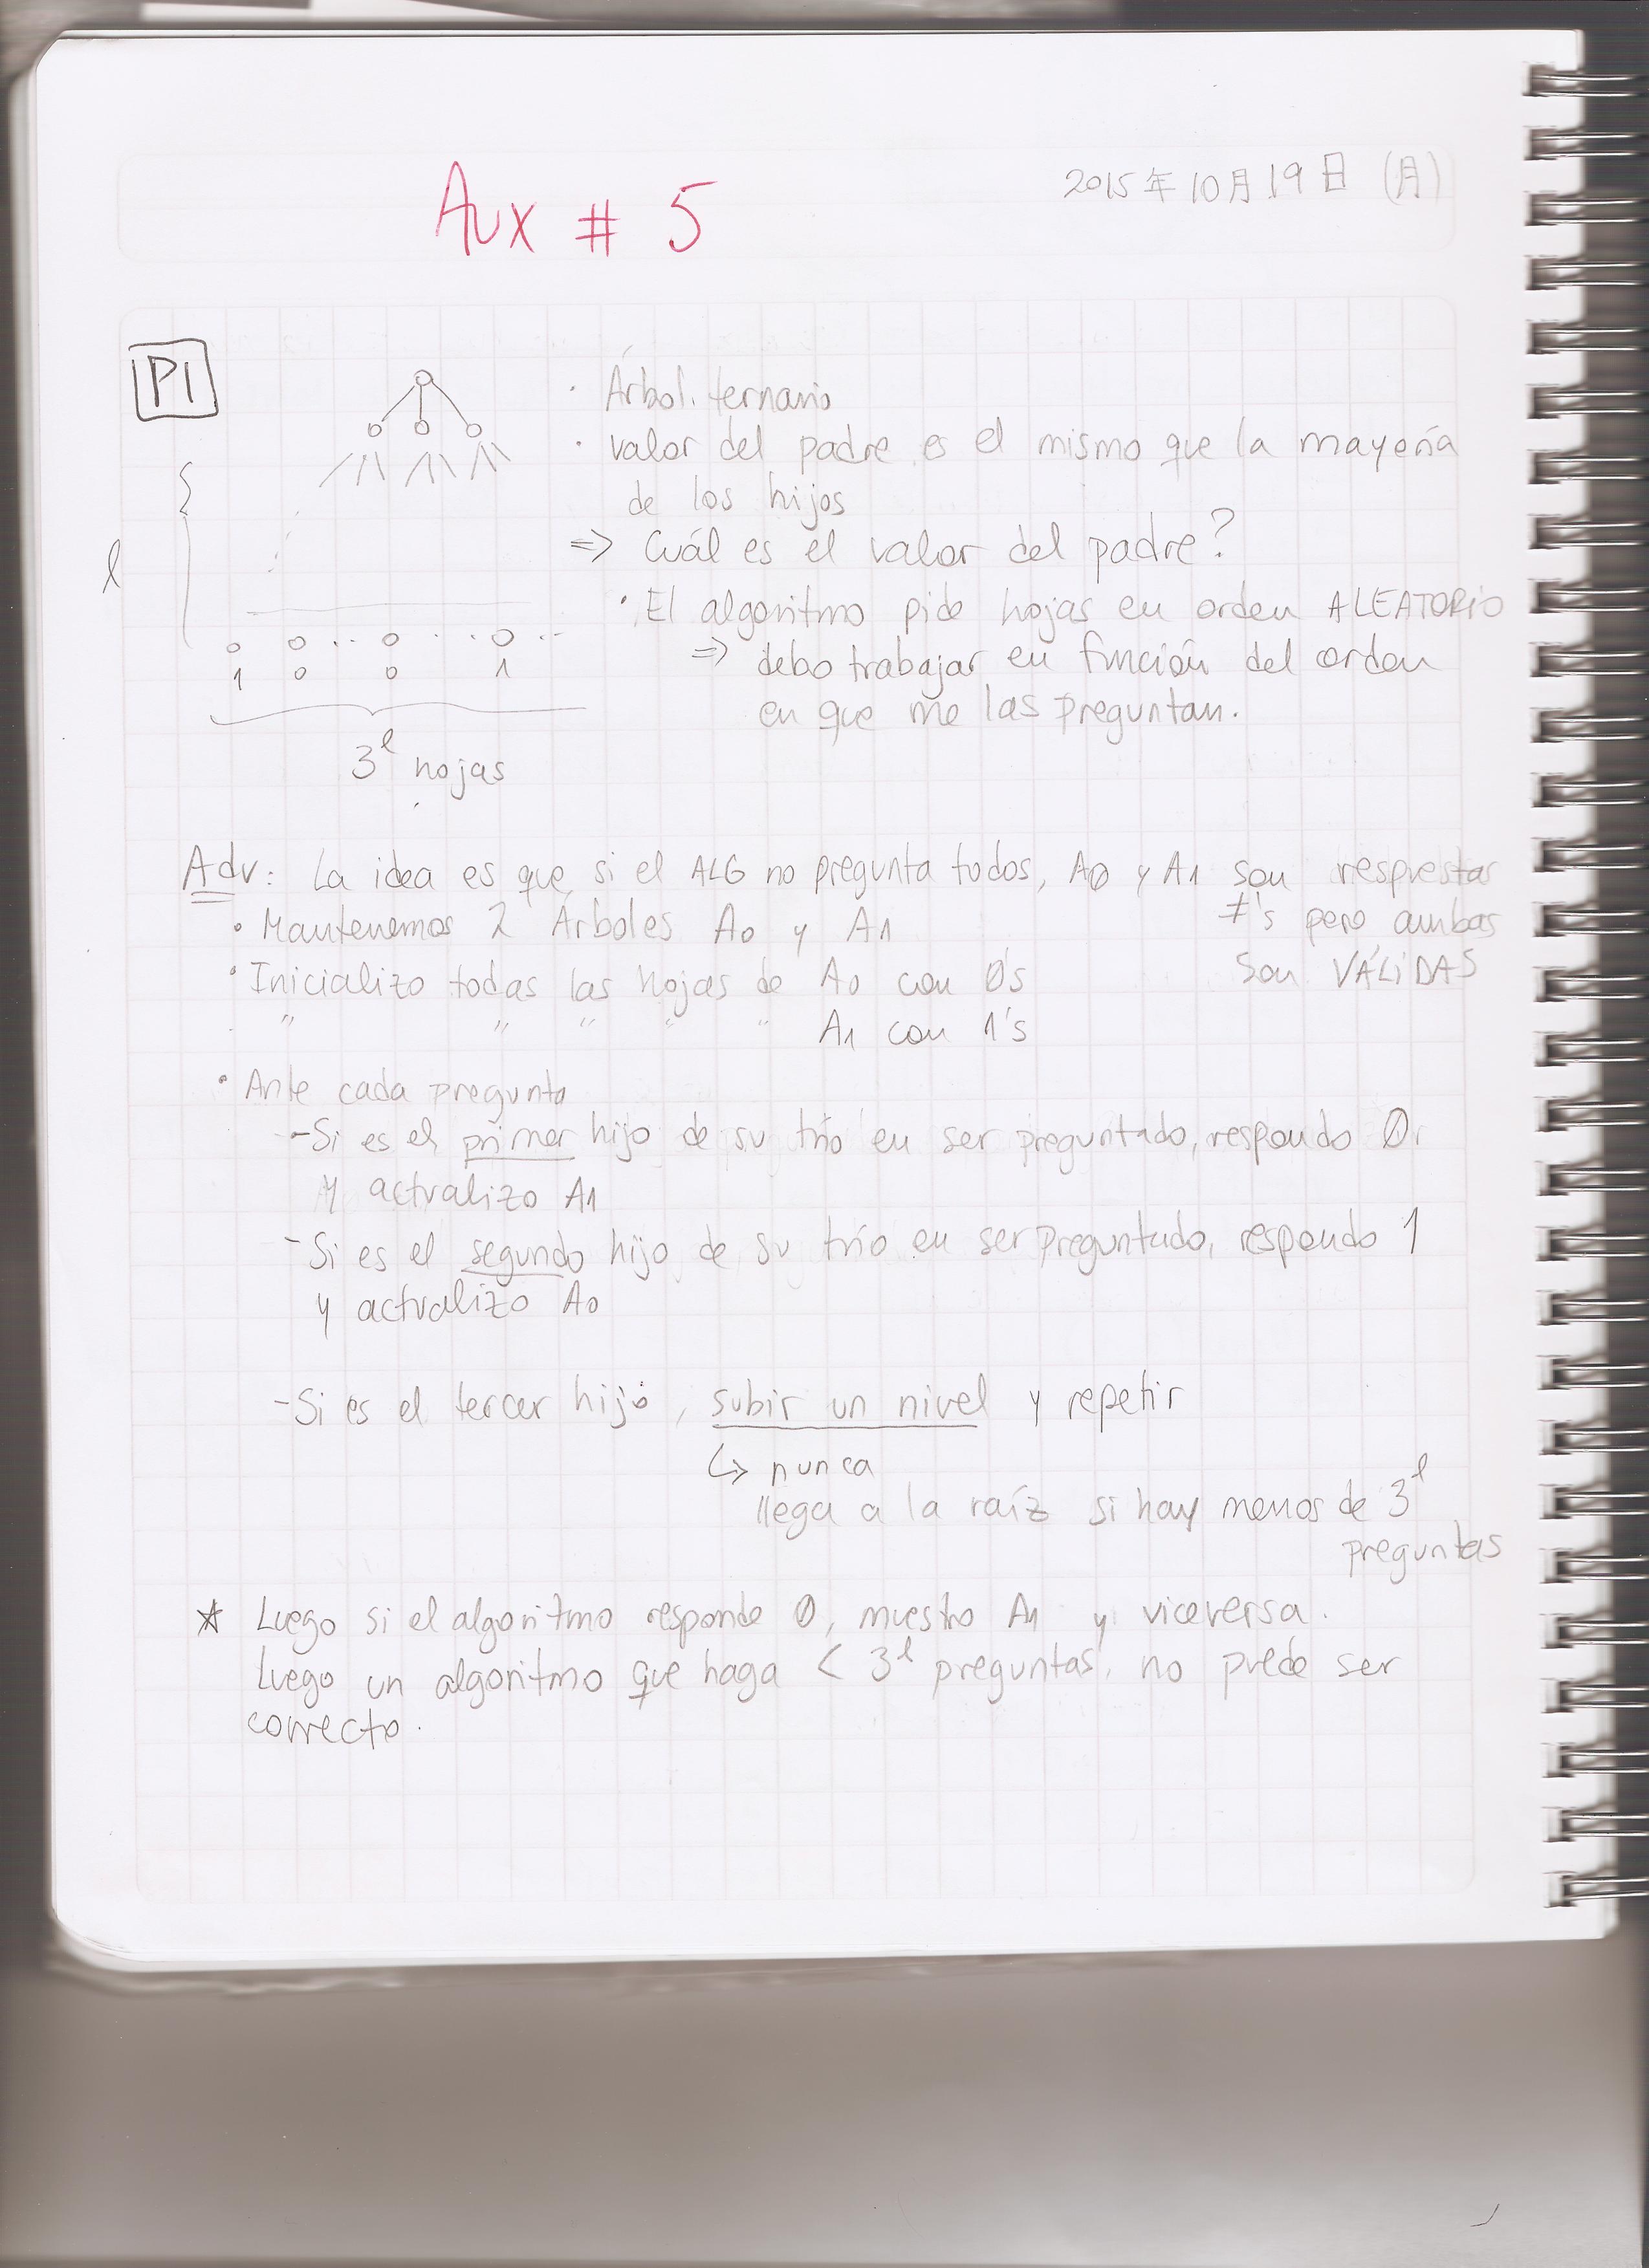 Aux # 5
2015年10月19日 (月)
P1
· Árbol ternario
· valor del padre es el mismo que la mayoría
de los hijos
⇒ Cuál es el valor del padre?
· El algoritmo pide hojas en orden ALEATORIO
⇒ debo trabajar en función del orden
en que me las preguntan.
l
1 0 0 1
3^l hojas
Adv: La idea es que si el ALG no pregunta todos, A0 y A1 son respuestas
≠'s pero ambas
son VÁLIDAS
· Mantenemos 2 Árboles A0 y A1
· Inicializo todas las hojas de A0 con 0's
" " " " " A1 con 1's
· Ante cada pregunta
- Si es el primer hijo de su trío en ser preguntado, respondo 0
y actualizo A1
- Si es el segundo hijo de su trío en ser preguntado, respondo 1
y actualizo A0
- Si es el tercer hijo, subir un nivel y repetir
↳ nunca
llega a la raíz si hay menos de 3^l
preguntas
☆ Luego si el algoritmo responde 0, muestro A1 y viceversa.
Luego un algoritmo que haga < 3^l preguntas, no puede ser
correcto.